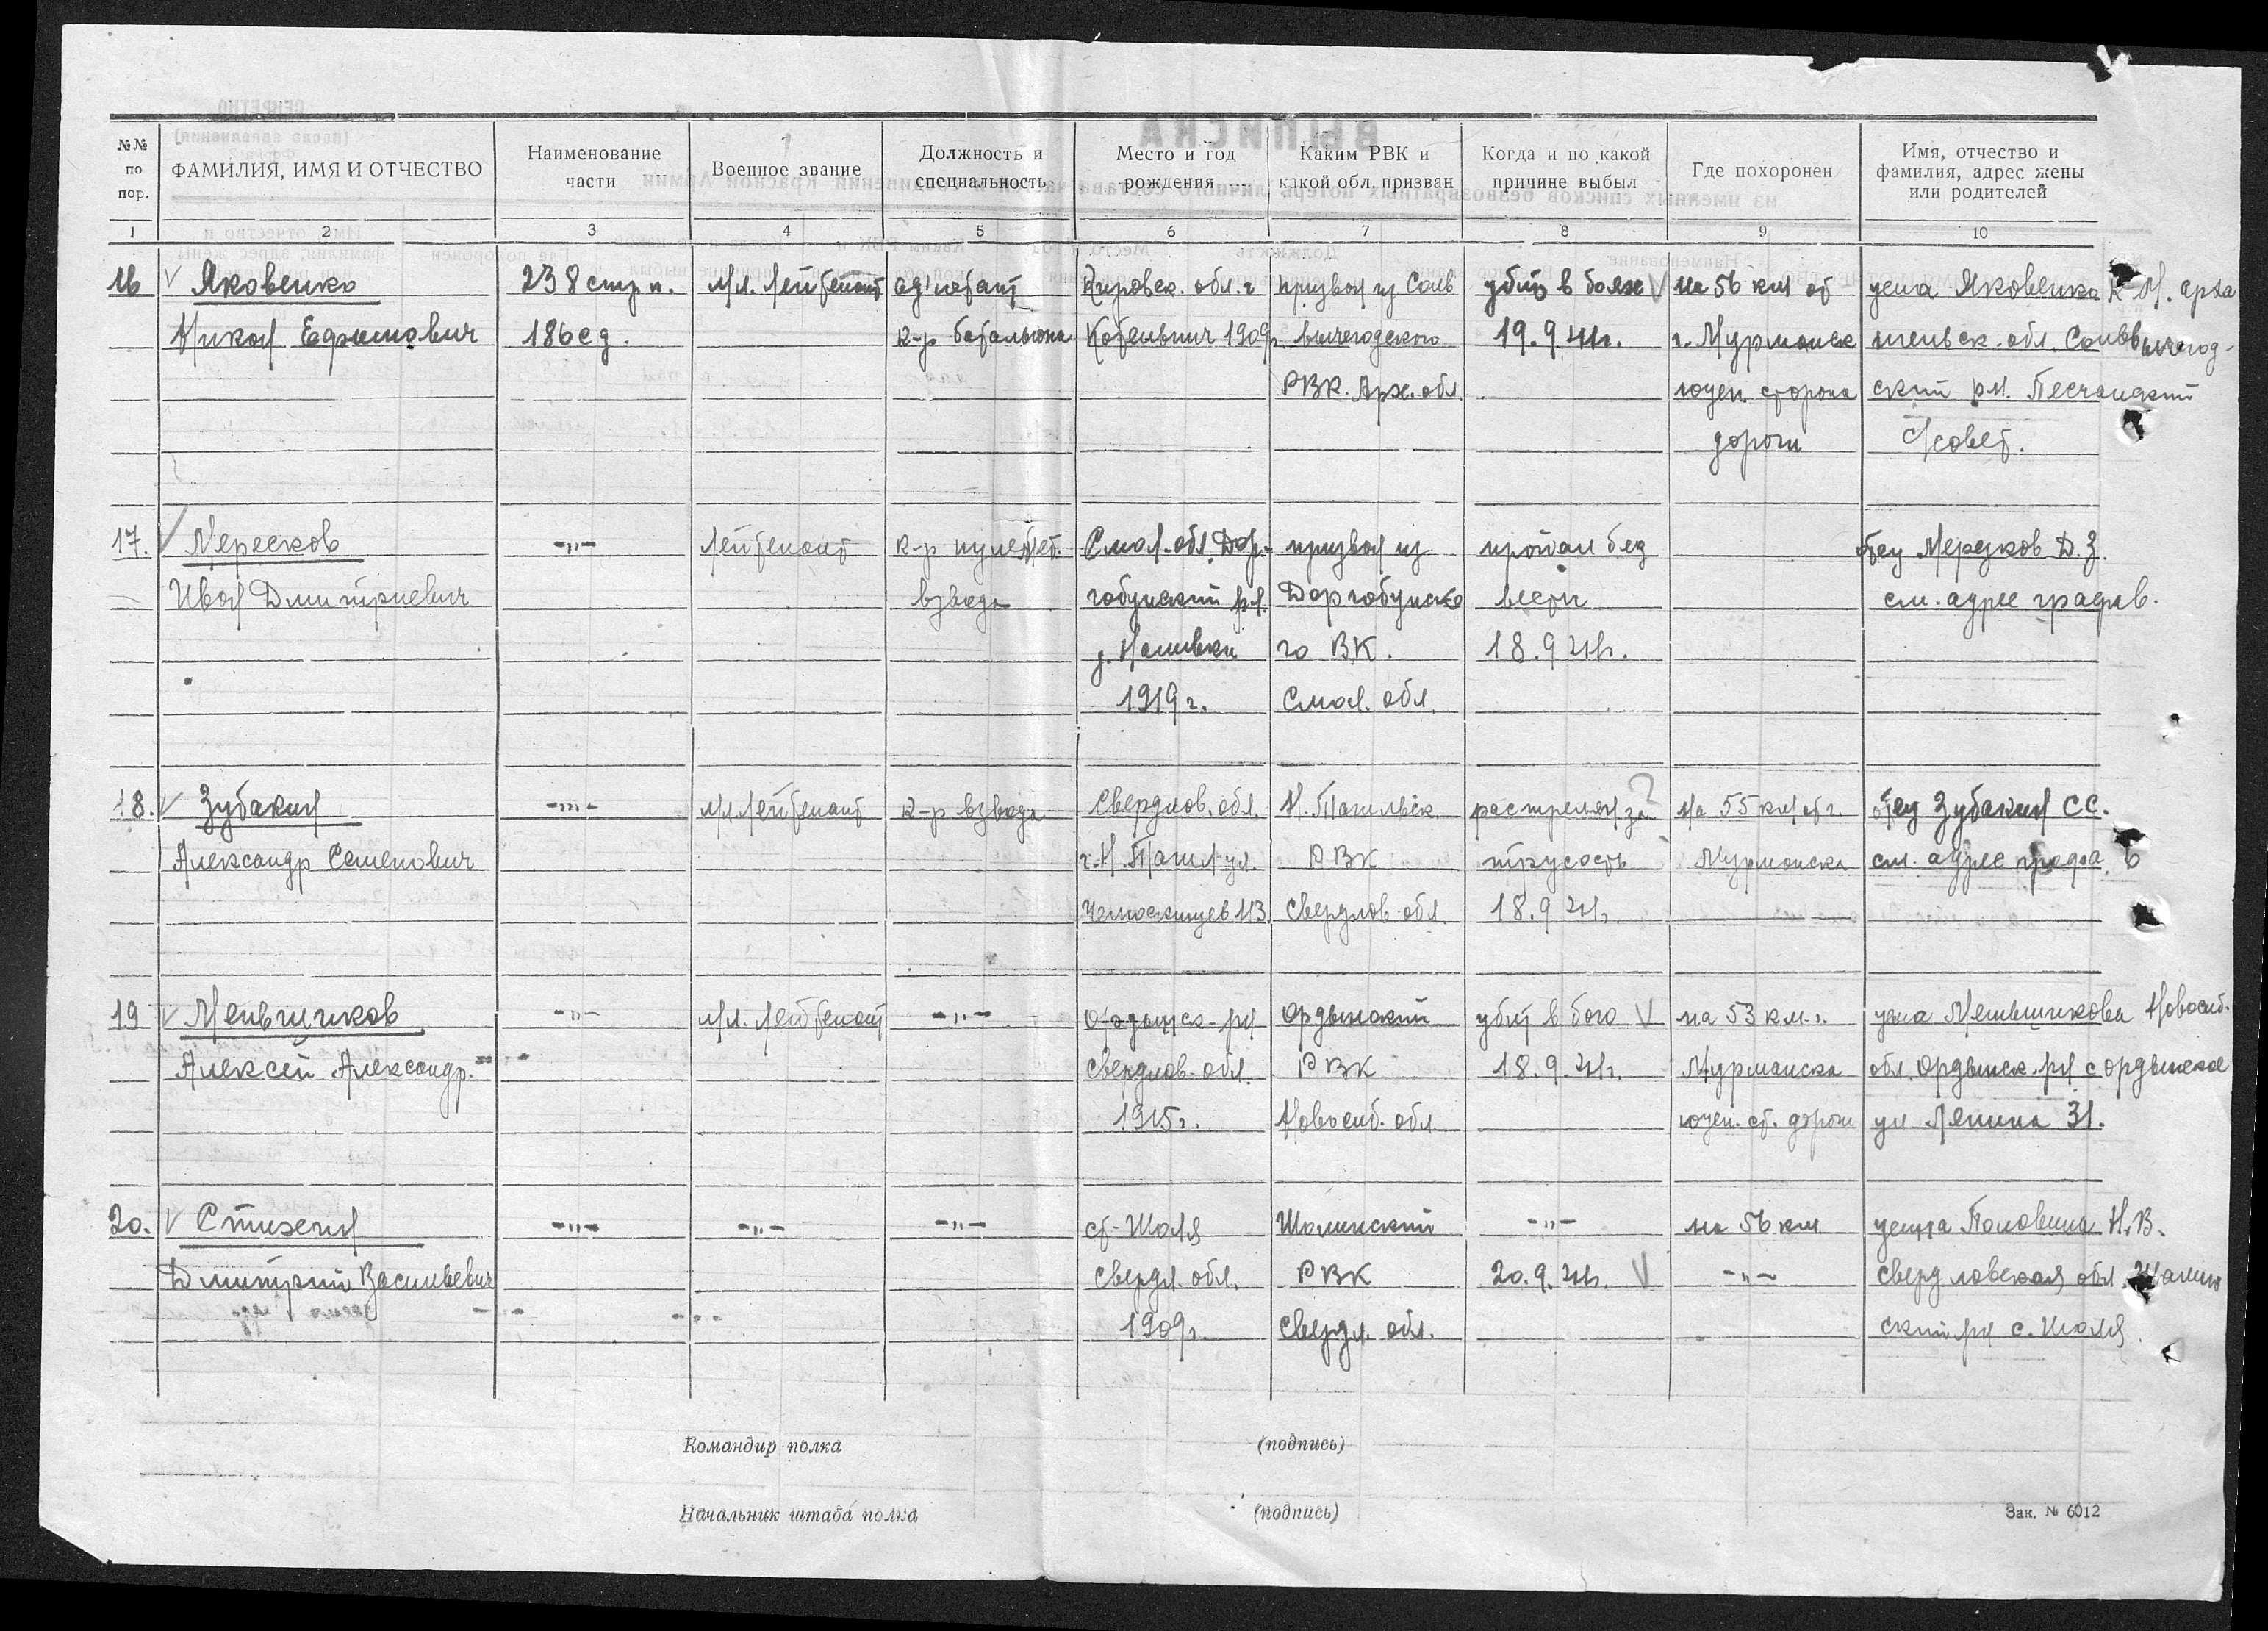 №№ по пор.
ФАМИЛИЯ, ИМЯ И ОТЧЕСТВО
Наименование части
Военное звание
Должность и специальность
Место и год рождения
Каким РВК и какой обл. призван
Когда и по какой причине выбыл
Где похоронен
Имя, отчество и фамилия, адрес жены или родителей
1 2 3 4 5 6 7 8 9 10
16 Яковенко 238 стр п. Мл. Лейтенант адъютант Кировск. обл. г призван из Соль убит в боях на 56 км от жена Яковенко К М. Арха
Никол Ефимович 186 сд. к-р батальона Котельнич 1909г. вычегодского 19.9.41г. г. Мурманск нгельск. обл. Сольвычегод-
РВК. Арх. обл. южн. сторона ский р-н. Песчанский
дороги с/совет.
17. Мересков -"- Лейтенант к-р пулемет. Смол. обл. Дор- призван из пропал без отец Мерезков Д.З.
Иван Дмитриевич взвода гобужский р-н. Доргобужско вести см. адрес граф. 6.
д. Наливки го ВК. 18.9.41г.
1919 г. Смол. обл.
18. Зубакин -"- Мл. Лейтенант к-р взвода Свердлов. обл. Н. Тагильск. расстрелян за ? На 55 км от г. отец Зубакин С С.
Александр Семенович г. Н. Тагил ул. РВК трусость Мурманска см. адрес графа 6
Челюскинцев 113 Свердлов обл. 18.9.41г.
19 Меньшиков -"- Мл. Лейтенант -"- Ордынск-р-н Ордынский убит в бою на 53 км. г. жена Меньшикова Новосиб.
Алексей Александр. Свердлов. обл. РВК 18.9.41г. Мурманска обл. Ордынск. р-н с Ордынское
1915г. Новосиб. обл южн. ст. дороги ул Ленина 31.
20. Стихин -"- -"- -"- ст-Шаля Шалинский -"- на 56 км жена Половина Н.В.
Дмитрий Васильевич Свердл. обл. РВК 20.9.41г. -"- Свердловская обл. Шалин
1909г. Свердл. обл. ский р-н с. Шаля
Командир полка (подпись)
Начальник штаба полка (подпись)
Зак. № 6012